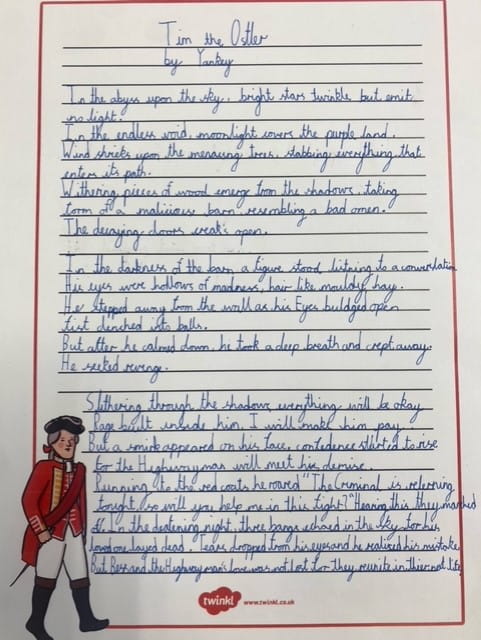 Tim the Ostler
by Yankey
In the abyss upon the sky, bright stars twinkle but emit
no light.
In the endless void, moonlight covers the purple land.
Wind shrieks upon the menacing trees, stabbing everything that
enters its path.
Withering pieces of wood emerge from the shadows, taking
form of a malicious barn, resembling a bad omen.
The decaying doors creak's open.
In the darkness of the barn a figure stood, listning to a conversation
His eyes were hollows of madness, hair like mouldy hay.
He stepped away from the wall as his Eyes buldged open
fist clenched into balls.
But after he calmed down, he took a deep breath and crept away.
He seeked revenge.
Slithering through the shadows, everything will be okay
Rage built inside him, I will make him pay
But a smirk appeared on his face, confedence started to rise
for the Highwayman will meet his demise.
Running to the red coats he roared "The Criminal is returning
tonight, so will you help me in this fight?" Hearing this they marched
off. In the deafening night, three bangs echoed in the sky for his
loved one layed dead. Tears dropped from his eyes and he realized his mistake
But Bess and the Highwayman's love was not lost for they reunite in thier next life
twinkl www.twinkl.co.uk